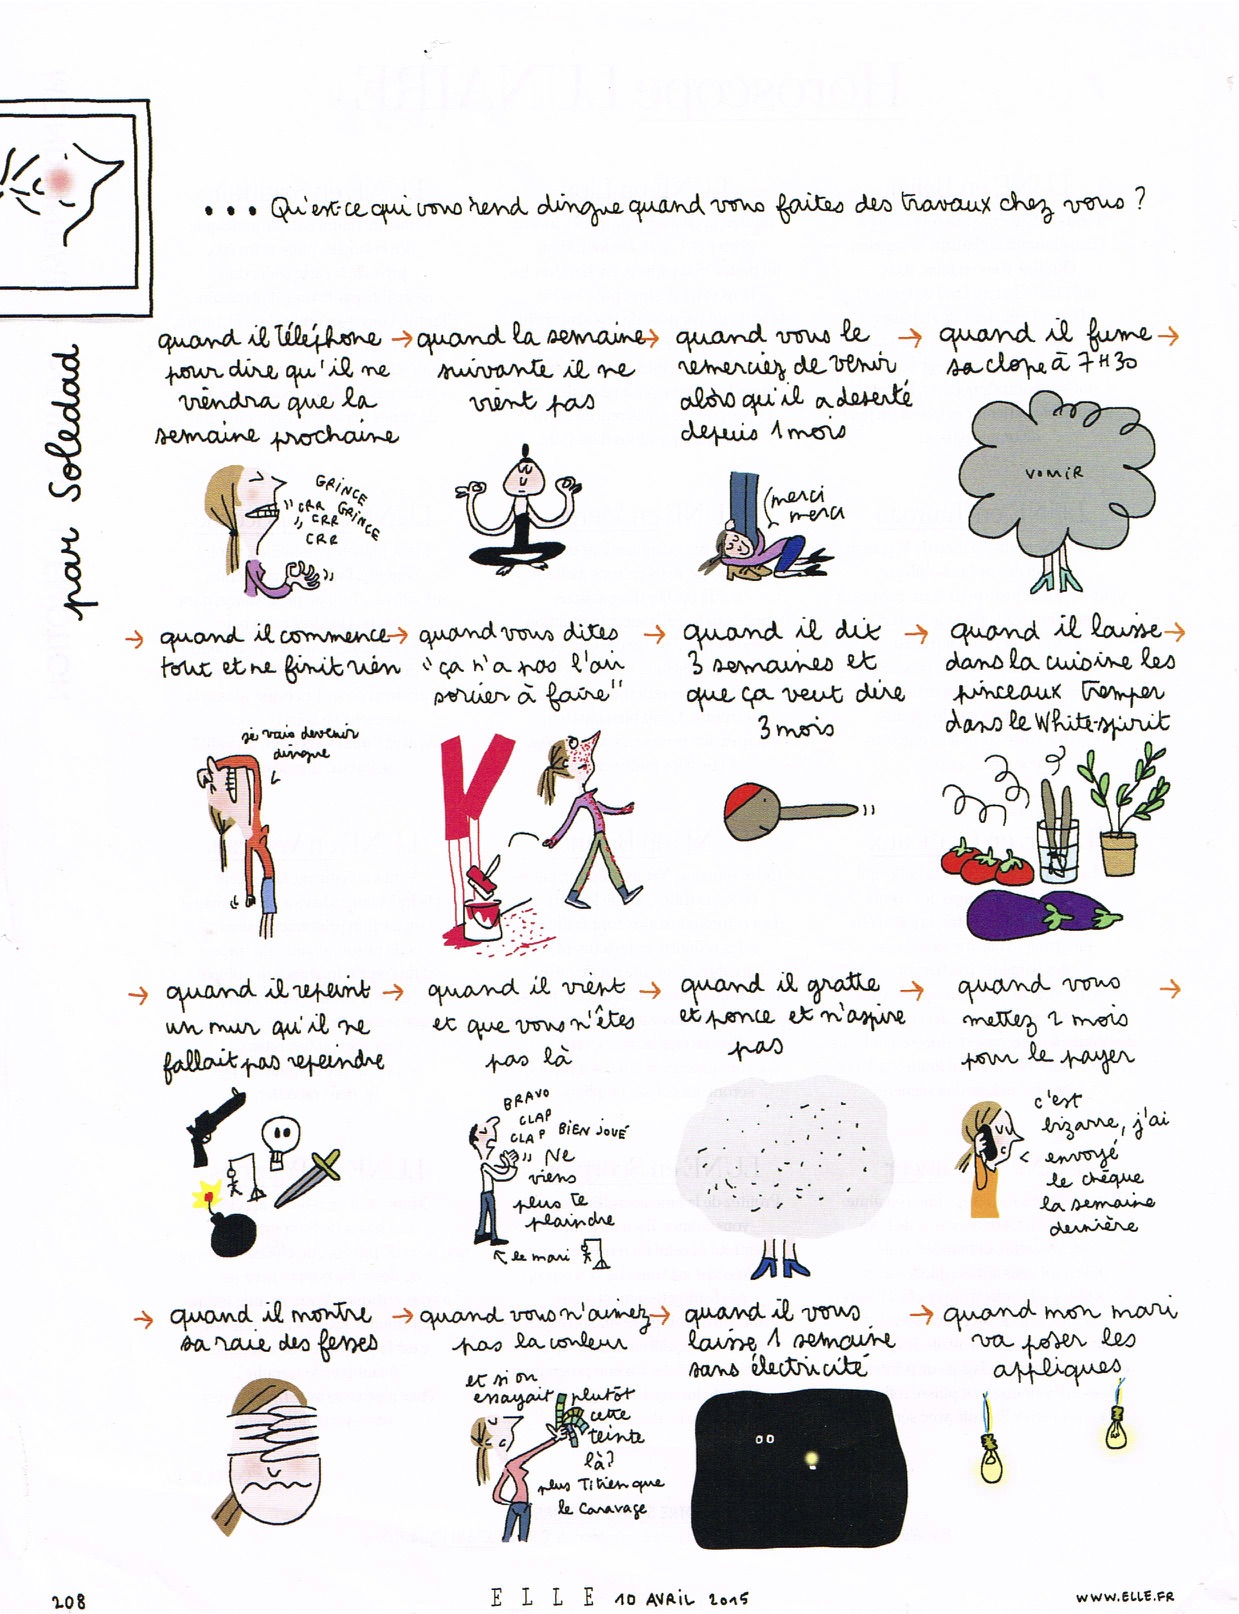 ... Qu'est-ce qui vous rend dingue quand vous faites des travaux chez vous ?
par Soledad
quand il téléphone
pour dire qu'il ne
viendra que la
semaine prochaine
GRINCE
CRR GRINCE
CRR
CRR
→ quand la semaine
suivante il ne
vient pas
→ quand vous le
remerciez de venir
alors qu'il a deserté
depuis 1 mois
merci
merci
→ quand il fume →
sa clope à 7H30
VOMIR
→ quand il commence
tout et ne finit rien
je vais devenir
dingue
→ quand vous dites
"ça n'a pas l'air
sorcier à faire"
→ quand il dit
3 semaines et
que ça veut dire
3 mois
→ quand il laisse →
dans la cuisine les
pinceaux tremper
dans le White-spirit
→ quand il repeint
un mur qu'il ne
fallait pas repeindre
→ quand il vient
et que vous n'êtes
pas là
BRAVO
CLAP
CLAP BIEN JOUÉ
Ne
viens
plus te
plaindre
le mari
→ quand il gratte
et ponce et n'aspire
pas
→ quand vous →
mettez 2 mois
pour le payer
c'est
bizarre, j'ai
envoyé
le chèque
la semaine
dernière
→ quand il montre
sa raie des fesses
→ quand vous n'aimez
pas la couleur
et si on
essayait plutôt
cette
teinte
là?
plus Titien que
le Caravage
→ quand il vous
laisse 1 semaine
sans électricité
→ quand mon mari
va poser les
appliques
208
ELLE 10 AVRIL 2015
WWW.ELLE.FR